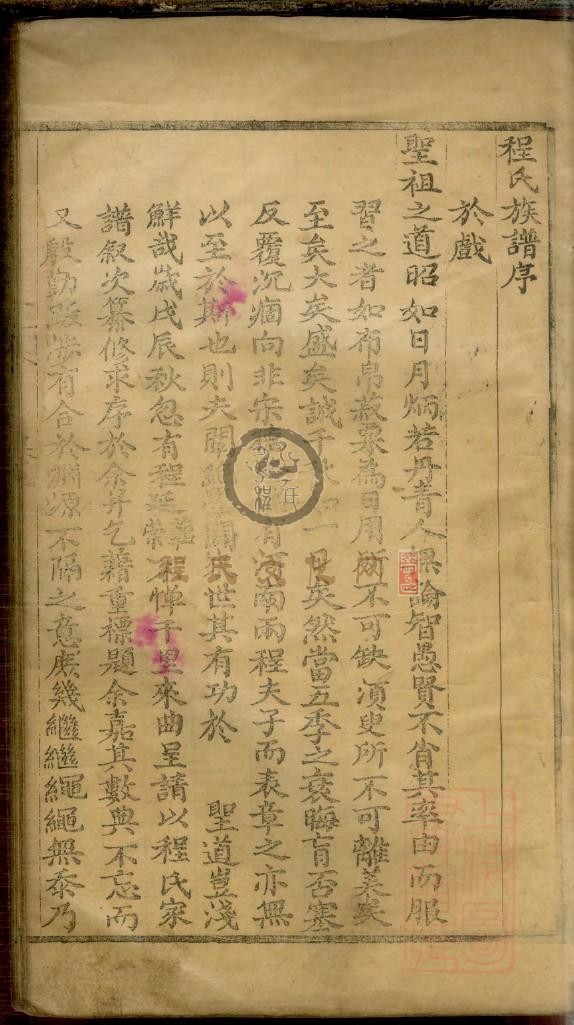 程氏族譜序
於戲
聖祖之道昭如日月炳若丹青人無論智愚賢不肖其率由而服
習之者如布帛菽粟為日用所不可缺須臾所不可離美矣
至矣大矣盛矣誠千一日矣然當五季之衰晦盲否塞
反覆沉痼向非宋有河南兩程夫子而表章之亦無
以至於斯也則夫開民世其有功於 聖道豈淺
鮮哉歲戊辰秋忽有程廷榮華程憚千里來曲呈請以程氏家
譜叙次纂修求序於余并乞藉重標題余嘉其數典不忘而
又殷勤跋涉有合於淵源不隔之意庶幾繼繼繩繩無忝乃